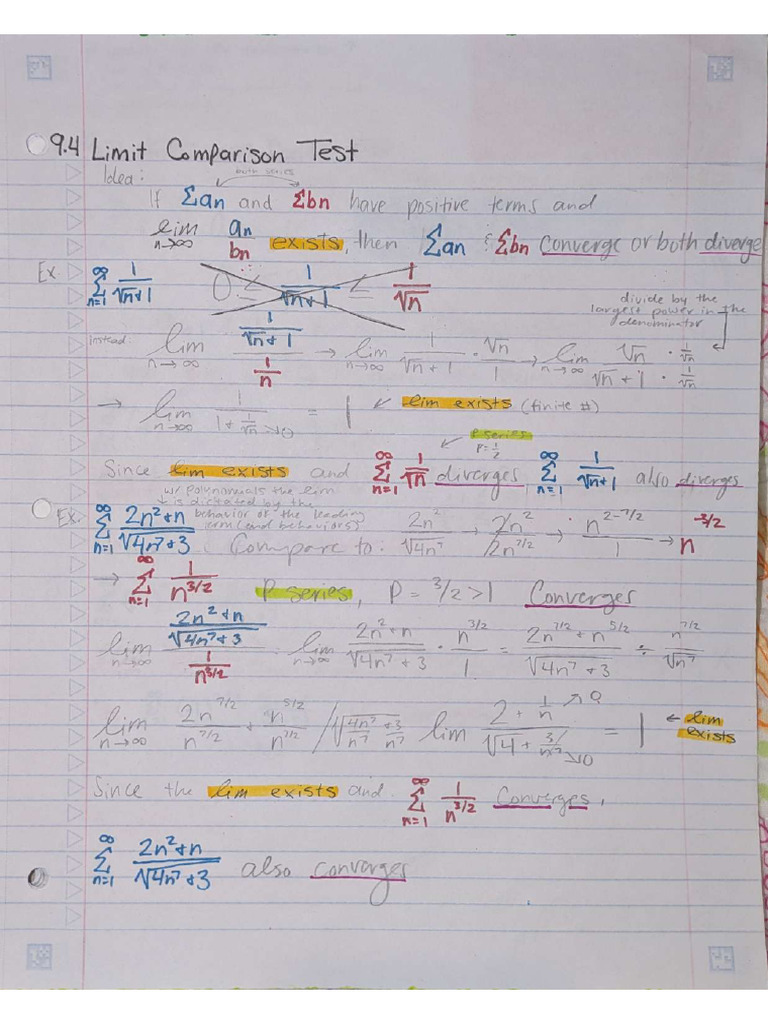 9.4 Limit Comparison Test
Idea: both series
If Σan and Σbn have positive terms and
lim n→∞ an/bn exists, then Σan & Σbn Converge or both diverge
Ex. ∞ Σ n=1 1/(√n+1) 0 ≤ 1/(√n+1) ≤ 1/√n
divide by the
largest power in the
denominator
instead: lim n→∞ (1/(√n+1))/(1/n) → lim n→∞ 1/(√n+1) · √n/1 → lim n→∞ √n/(√n+1) · (1/√n)/(1/√n)
→ lim n→∞ 1/(1+1/√n→0) = 1 ← lim exists (finite #)
P series
P=1/2
Since lim exists and ∞ Σ n=1 1/√n diverges ∞ Σ n=1 1/(√n+1) also diverges
w/ polynomials the lim
is dictated by the
behavior of the leading
term (and behaviors)
Ex. ∞ Σ n=1 (2n²+n)/√(4n⁷+3) Compare to: 2n²/√4n⁷ → 2n²/2n^7/2 → n^2-7/2/1 → n^-3/2
→ ∞ Σ n=1 1/n^3/2 P series, P = 3/2 > 1 Converges
lim n→∞ ((2n²+n)/√(4n⁷+3))/(1/n^3/2) = lim n→∞ (2n²+n)/√(4n⁷+3) · n^3/2/1 = (2n^7/2+n^5/2)/√(4n⁷+3) ÷ n^7/2/√n⁷
lim n→∞ 2n^7/2/n^7/2 + n^5/2/n^7/2 / √(4n⁷/n⁷ + 3/n⁷) lim (2+1/n→0)/√(4+3/n⁷→0) = 1 ← lim exists
Since the lim exists and ∞ Σ n=1 1/n^3/2 Converges,
∞ Σ n=1 (2n²+n)/√(4n⁷+3) also converges